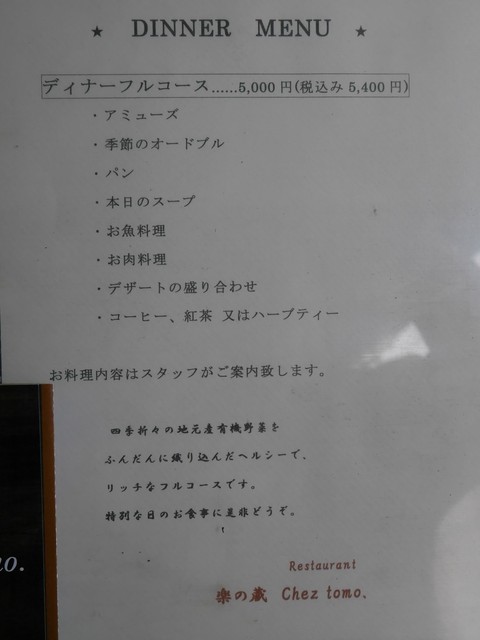 ★ DINNER MENU ★
ディナーフルコース......5,000 円(税込み 5,400 円)
・アミューズ
・季節のオードブル
・パン
・本日のスープ
・お魚料理
・お肉料理
・デザートの盛り合わせ
・コーヒー、紅茶 又はハーブティー
お料理内容はスタッフがご案内致します。
四季折々の地元産有機野菜を
ふんだんに織り込んだヘルシーで、
リッチなフルコースです。
特別な日のお食事に是非どうぞ。
Restaurant
楽の蔵 Chez tomo.